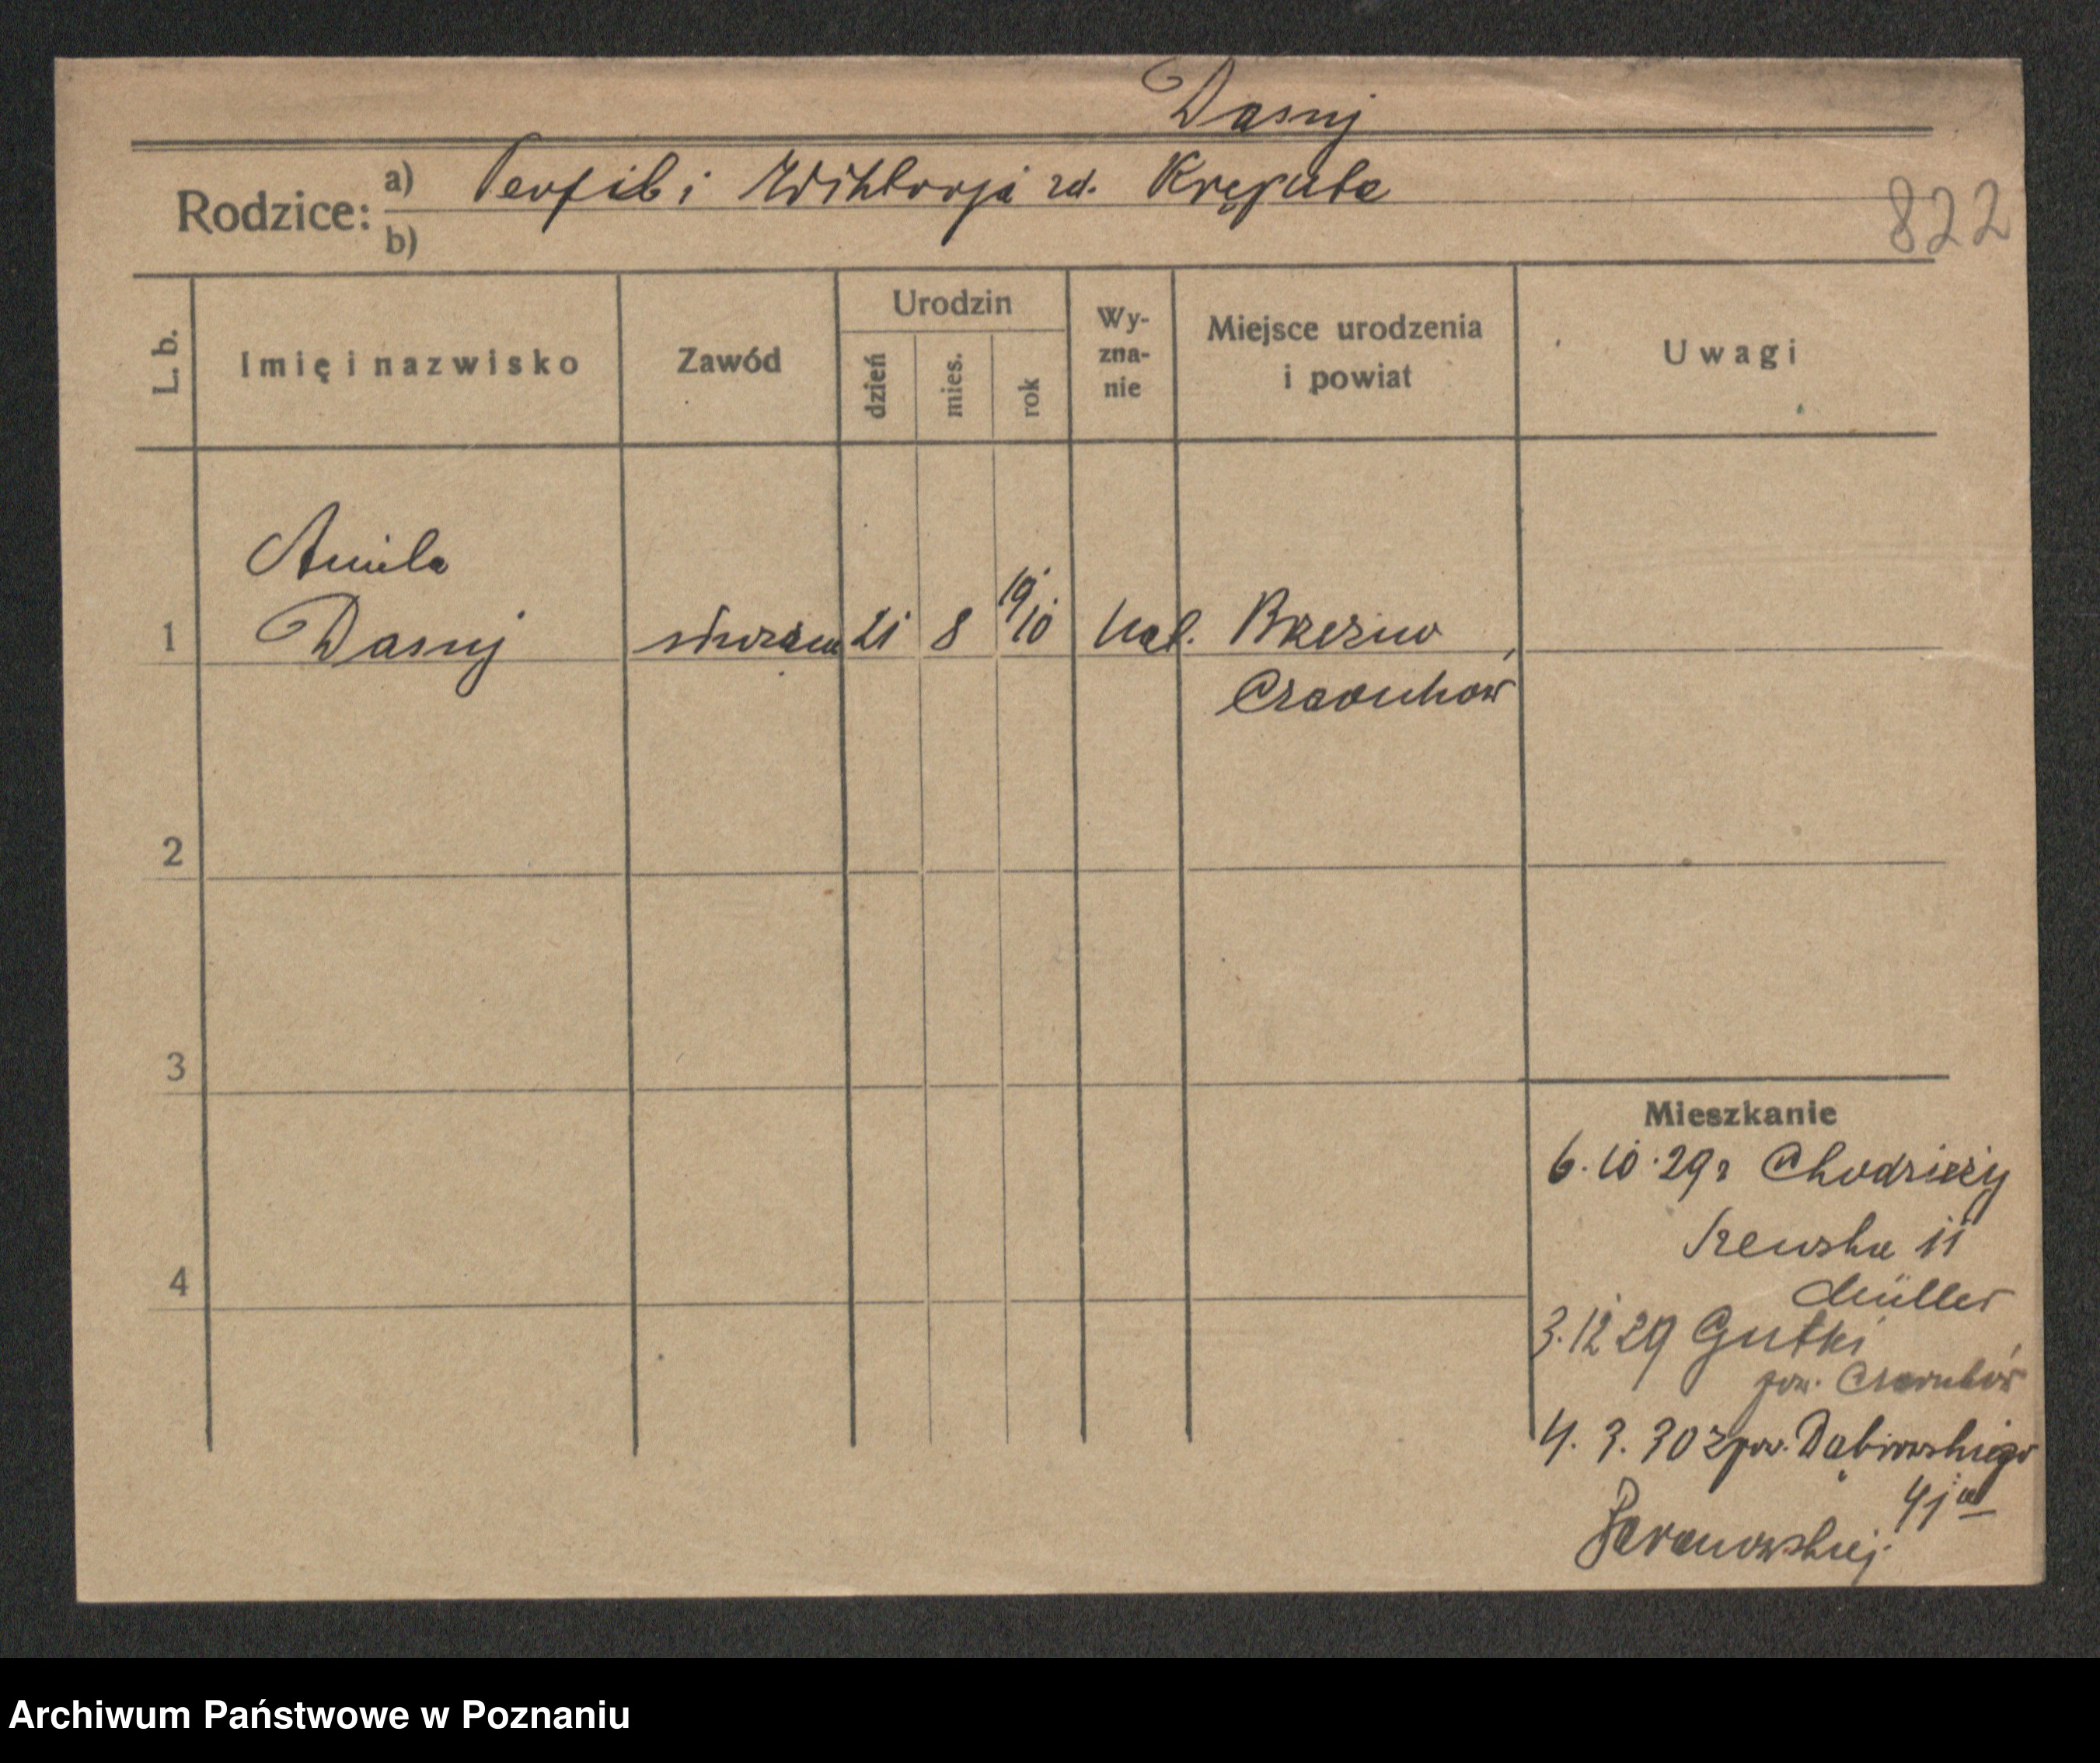 Dasuj
Rodzice: a) Teofil i Wiktorja zd. Kręputa
b)
822
L. b.
Imię i nazwisko
Zawód
Urodzin
dzień
mies.
rok
Wy-
zna-
nie
Miejsce urodzenia
i powiat
Uwagi
Aniela
1 Dasuj służąca 21 8 19/10 kat. Brzeźno,
Czarnków
2
3
4
Mieszkanie
6.10.29 r Chodzieży
Szewska 11
Müller
3.12 29 Gulki
pow. Czarnków
4. 3. 30 z pow. Dąbrowskiego
41
Baranowskiej
Archiwum Państwowe w Poznaniu